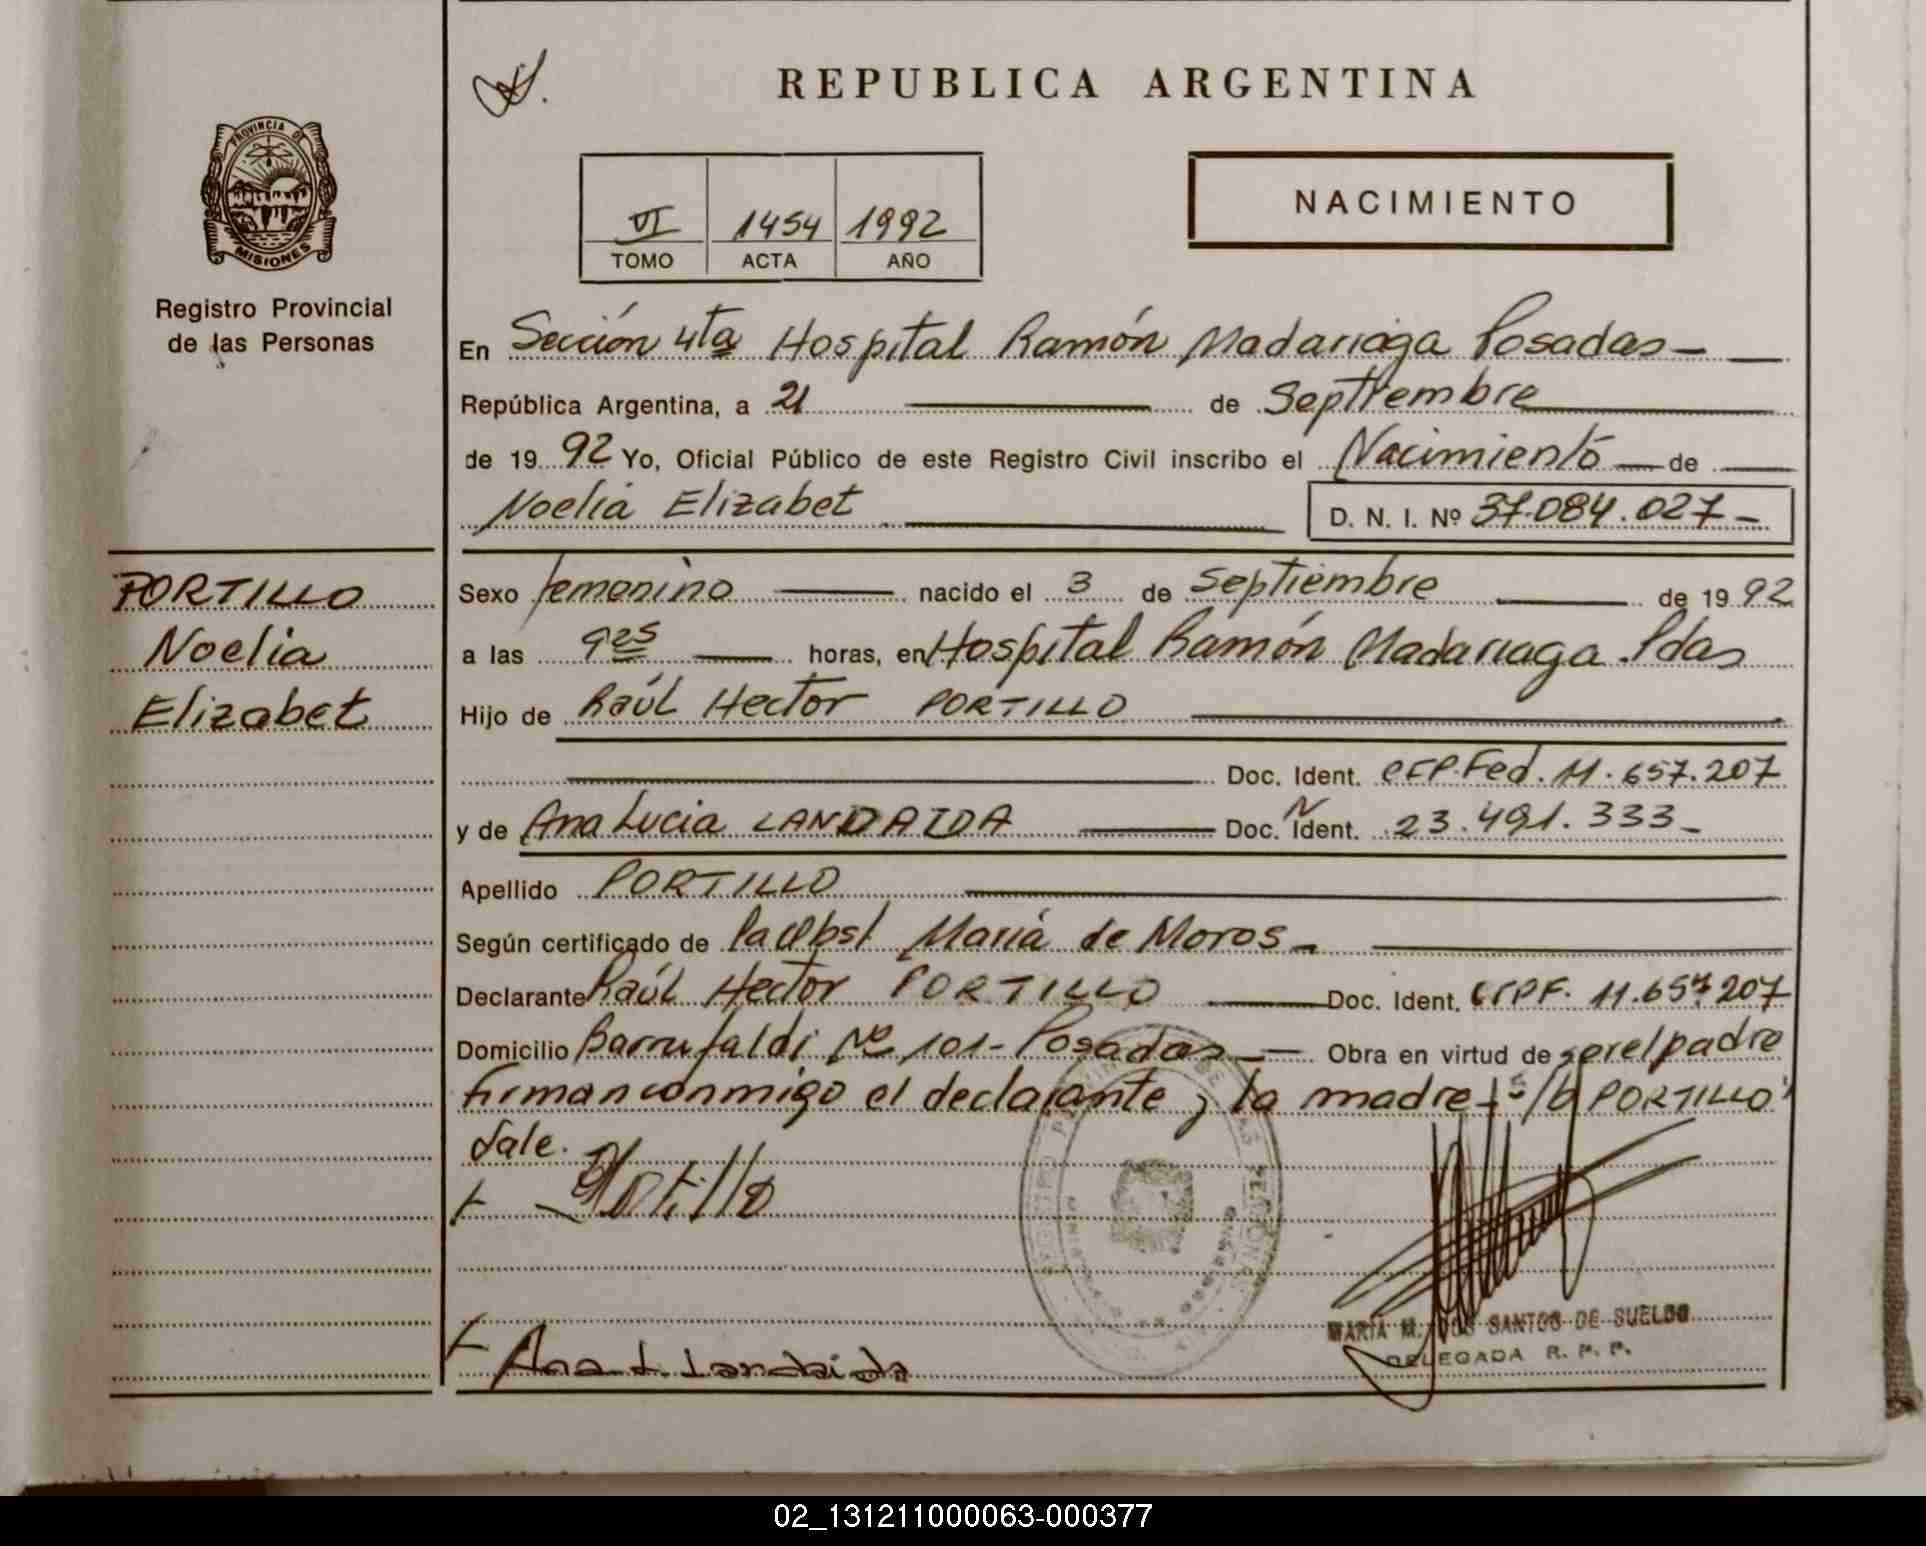 REPUBLICA ARGENTINA
PROVINCIA DE
MISIONES
Registro Provincial
de las Personas
NACIMIENTO
VI 1454 1992
TOMO ACTA AÑO
En Sección 4ta Hospital Ramón Madariaga Posadas
República Argentina, a 21 de Septiembre
de 1992 Yo, Oficial Público de este Registro Civil inscribo el Nacimiento de
Noelia Elizabet D. N. I. Nº 37.084.027
PORTILLO
Noelia
Elizabet
Sexo femenino nacido el 3 de Septiembre de 1992
a las 9 25 horas, en Hospital Ramón Madariaga. Pdas
Hijo de Raúl Hector PORTILLO
Doc. Ident. CIP.Fed. 11.657.207
y de Ana Lucia LANDAIDA Doc. N Ident. 23.491.333
Apellido PORTILLO
Según certificado de María de Moros
Declarante Raúl Hector PORTILLO Doc. Ident. CIPF. 11.657.207
Domicilio Barrufaldi Nº 101 - Posadas Obra en virtud de ser el padre
firman conmigo el declarante y la madre - s/b PORTILLO
Vale.
Portillo
Ana L. Landaida
MARIA M. DOS SANTOS DE SUELDO
DELEGADA R. P. P.
02_131211000063-000377